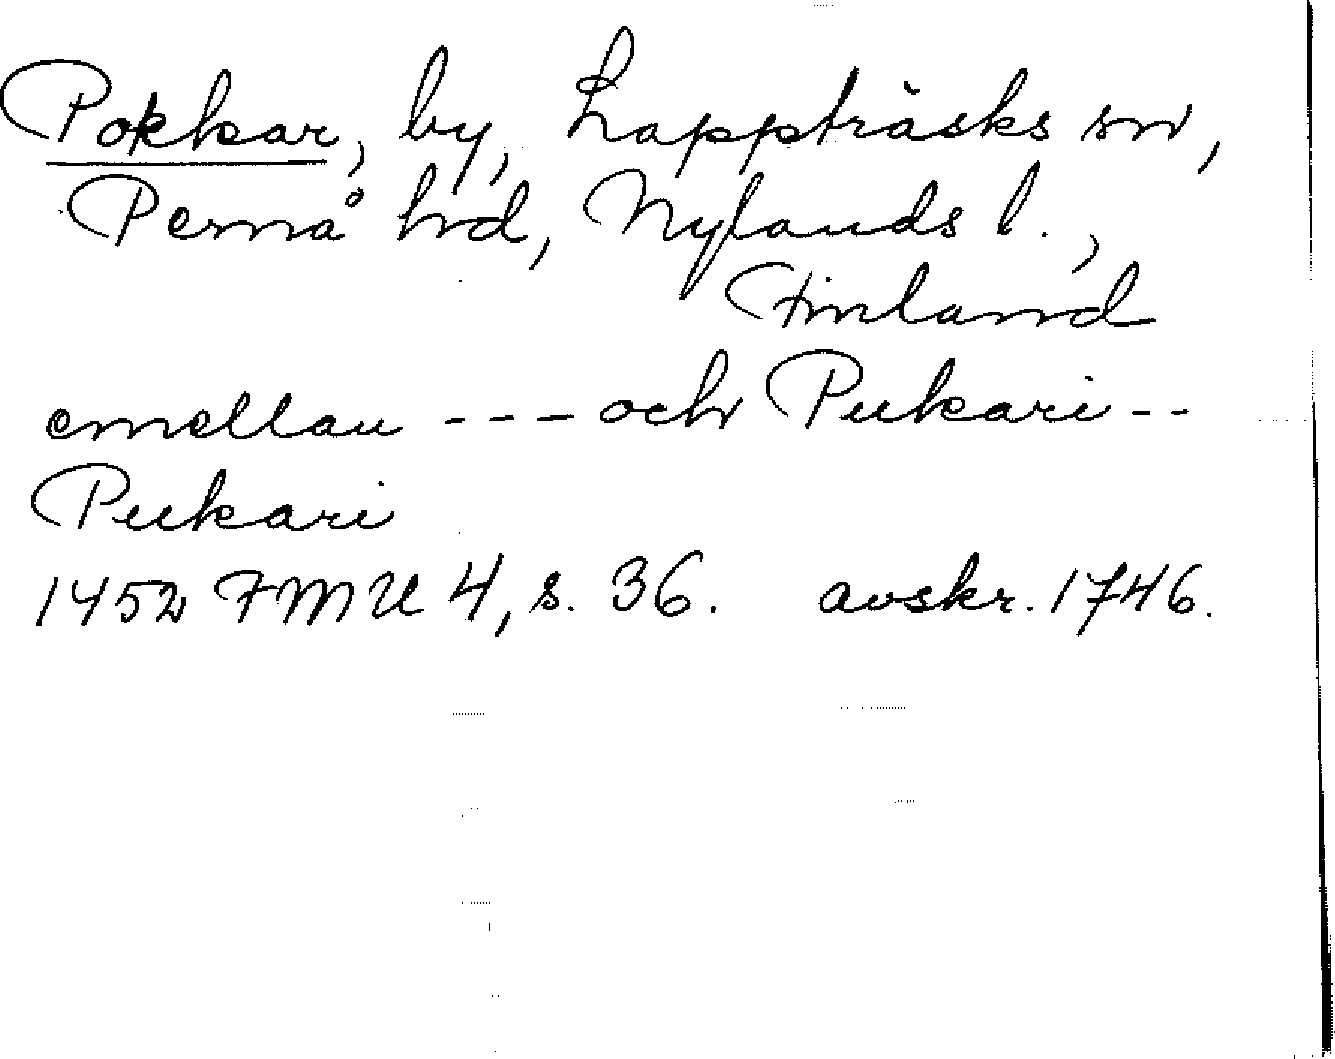 Pokkar, by, Lappträsks sn,
Pernå hrd, Nylands l.,
Finland
emellan --- och Pukari --
Pukari
1452 FMU 4, s. 36. avskr. 1746.